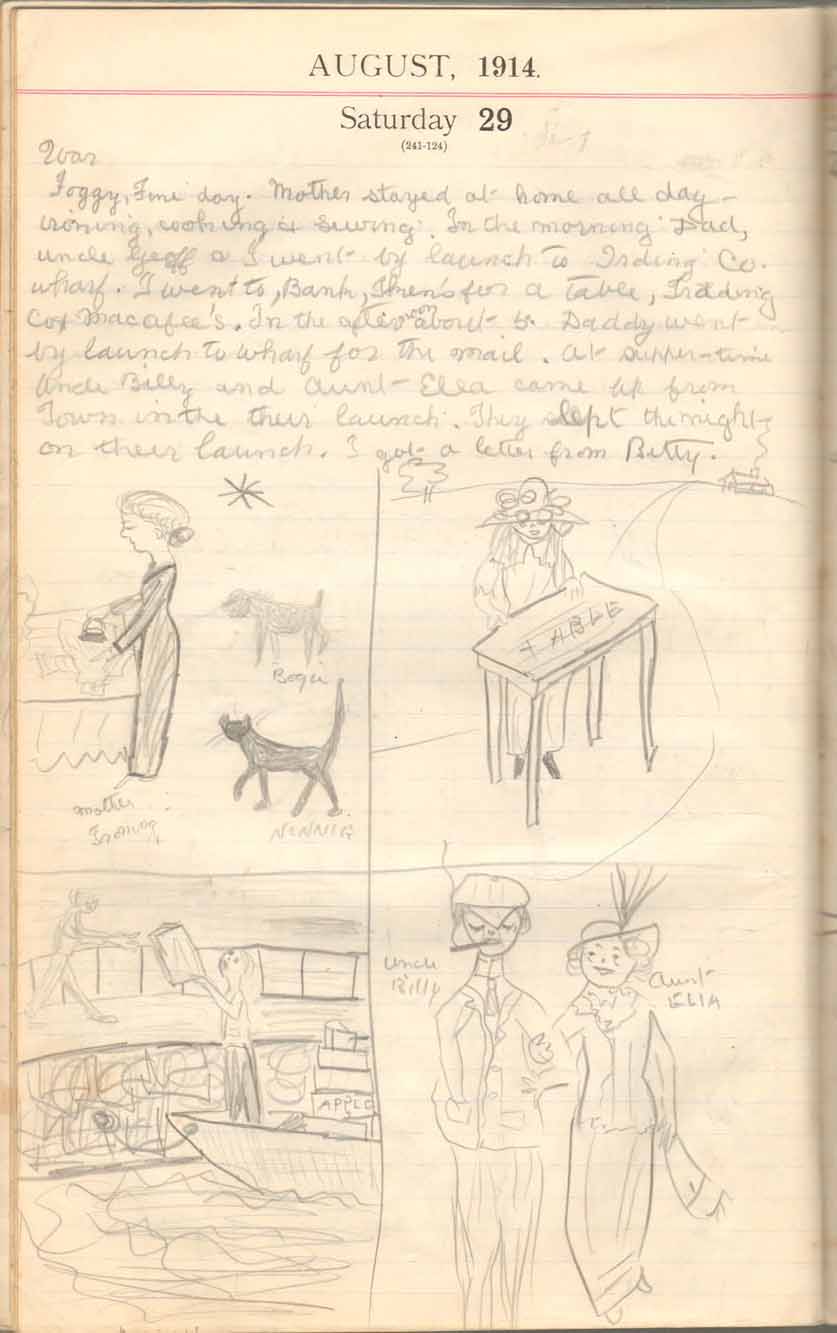 AUGUST, 1914.
Saturday 29
(241-124)
War
Foggy, Fine day. Mother stayed at home all day -
ironing, cooking & sewing. In the morning Dad,
uncle Geoff & I went by launch to Trding Co.
wharf. I went to, Bank, for a table, Trading
Co & Macafee's. In the afternoon about 5. Daddy went
by launch to wharf for the mail. At supper-time
Uncle Billy and Aunt Ella came up from
Town in the their launch. They slept the night
on their launch. I got a letter from Betty.
Mother
Ironing
NINNIE
TABLE
APPLE
Uncle
Billy
Aunt
ELLA